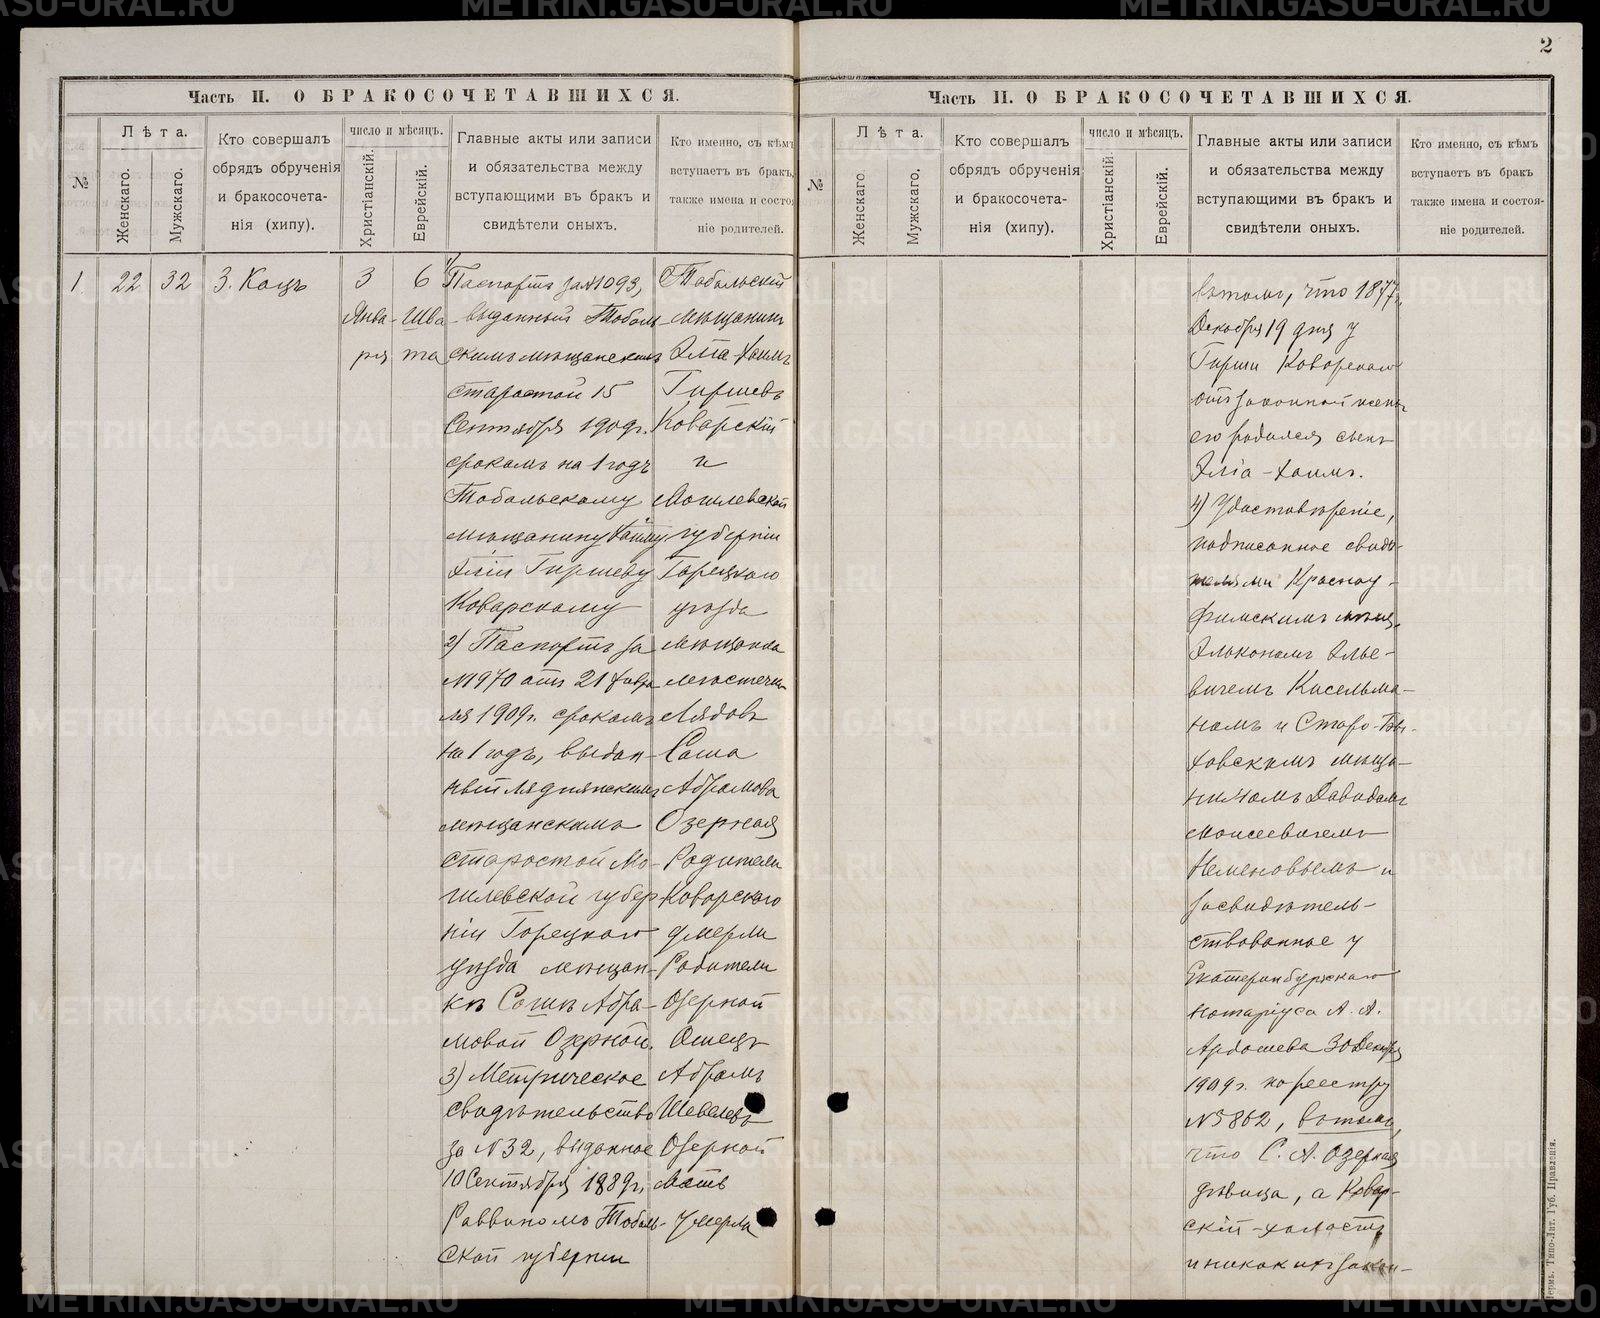 METRIKI.GASO-URAL.RU
2
Часть II. О БРАКОСОЧЕТАВШИХСЯ.
№
Лѣта.
Женскаго.
Мужскаго.
Кто совершалъ
обрядъ обрученія
и бракосочета-
нія (хипу).
число и мѣсяцъ.
Христіанскій.
Еврейскій.
Главные акты или записи
и обязательства между
вступающими въ бракъ и
свидѣтели оныхъ.
Кто именно, съ кѣмъ
вступаетъ въ бракъ,
также имена и состоя-
ніе родителей.
1.
22
32
З. Кацъ
3
Янва-
ря
6
Шва
та
Паспортъ за №1093,
выданный Тоболь-
скимъ мѣщанскимъ
старостой 15
Сентября 1909г.
срокомъ на 1 годъ
Тобольскому
мѣщанину Хаиму
Эліи Гиршеву
Коварскому
2) Паспортъ за
№970 отъ 21 Февра
ля 1909г. срокомъ
на 1 годъ, выдан-
ный Ляднянскимъ
мѣщанскимъ
старостой Мо-
гилевской губер
ніи Горецкаго
уѣзда мѣщан-
кѣ Сошѣ Абра-
мовой Озерной.
3) Метрическое
свидѣтельство
за №32, выданное
10 Сентября 1889г.,
Раввиномъ Тоболь-
ской губерніи
Тобольскій
мѣщанинъ
Эліа-Хаимъ
Гиршевъ
Коварскій
и
Могилевской
губерніи
Горецкаго
уѣзда
мѣщанка
мѣстечка
Лядовъ
Соша
Абрамова
Озерная
Родители
Коварскаго
умерли
Родители
Озерной
Отецъ
Абрамъ
Шевелевъ
Озерной
Мать
Умерла
Часть II. О БРАКОСОЧЕТАВШИХСЯ.
№
Лѣта.
Женскаго.
Мужскаго.
Кто совершалъ
обрядъ обрученія
и бракосочета-
нія (хипу).
число и мѣсяцъ.
Христіанскій
Еврейскій.
Главные акты или записи
и обязательства между
вступающими въ бракъ и
свидѣтели оныхъ.
Кто именно, съ кѣмъ
вступаетъ въ бракъ
также имена и состоя-
ніе родителей.
въ томъ, что 1877г.
Декабря 19 дня у
Гирши Коварскаго
отъ законной жены
его родился сынъ
Эліа-Хаимъ.
4) Удостовѣреніе,
подписанное свидѣ-
телями Красноу-
фимскимъ мѣщ.
Эльканомъ Элье-
вичемъ Кисельма-
номъ и Старо-Бы-
ховскимъ мѣща-
ниномъ Давидомъ
Моисеевичемъ
Неменовымъ и
засвидѣтель-
ствованное у
Екатеринбургскаго
нотаріуса А. А.
Ардашева 30 Декабря
1909г. по реестру
№5862, въ томъ,
что С. А. Озерная
дѣвица, а Ковар-
скій-холостъ
и никакихъ закон-
Пермь. Типо-Лит. Губ. Правленія.